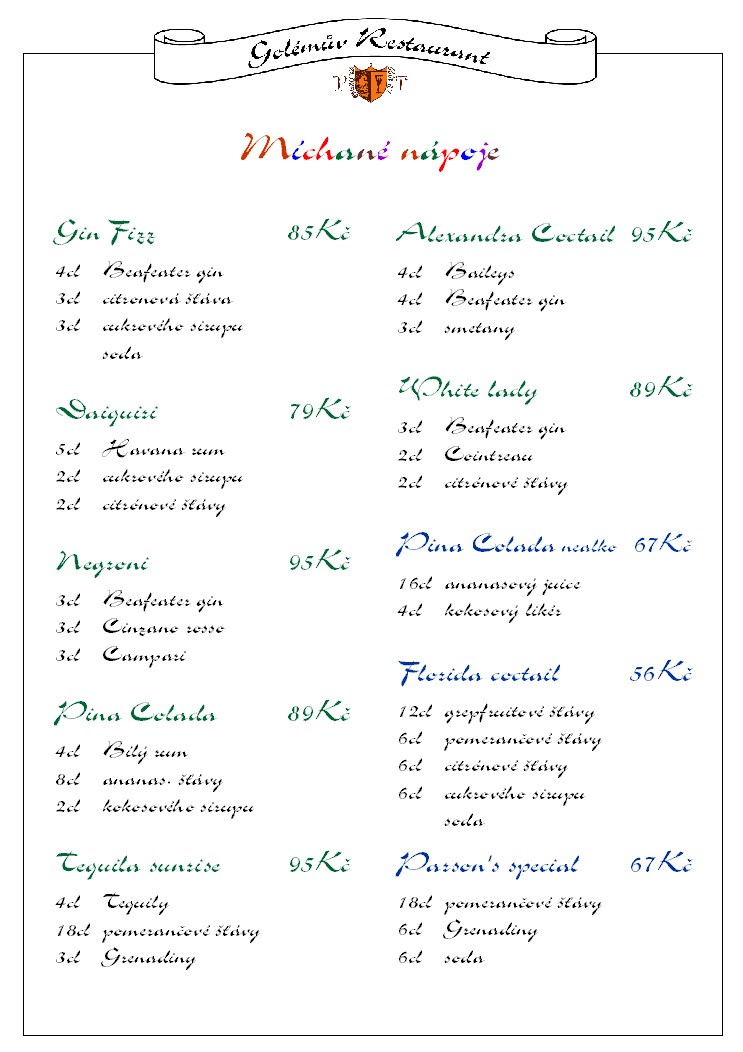 Golémův Restaurant
P T
Míchané nápoje
Gin Fizz 85Kč
4cl Beafeater gin
3cl citronová šťáva
3cl cukrového sirupu
soda
Daiquiri 79Kč
5cl Havana rum
2cl cukrového sirupu
2cl citrónové šťávy
Negroni 95Kč
3cl Beafeater gin
3cl Cinzano rosso
3cl Campari
Pina Colada 89Kč
4cl Bílý rum
8cl ananas. šťávy
2cl kokosového sirupu
Tequila sunrise 95Kč
4cl Tequily
18cl pomerančové šťávy
3cl Grenadiny
Alexandra Coctail 95Kč
4cl Baileys
4cl Beafeater gin
3cl smetany
White lady 89Kč
3cl Beafeater gin
2cl Cointreau
2cl citrónové šťávy
Pina Colada nealko 67Kč
16cl ananasový juice
4cl kokosový likér
Florida coctail 56Kč
12cl grepfruitové šťávy
6cl pomerančové šťávy
6cl citrónové šťávy
6cl cukrového sirupu
soda
Parson's special 67Kč
18cl pomerančové šťávy
6cl Grenadiny
6cl soda